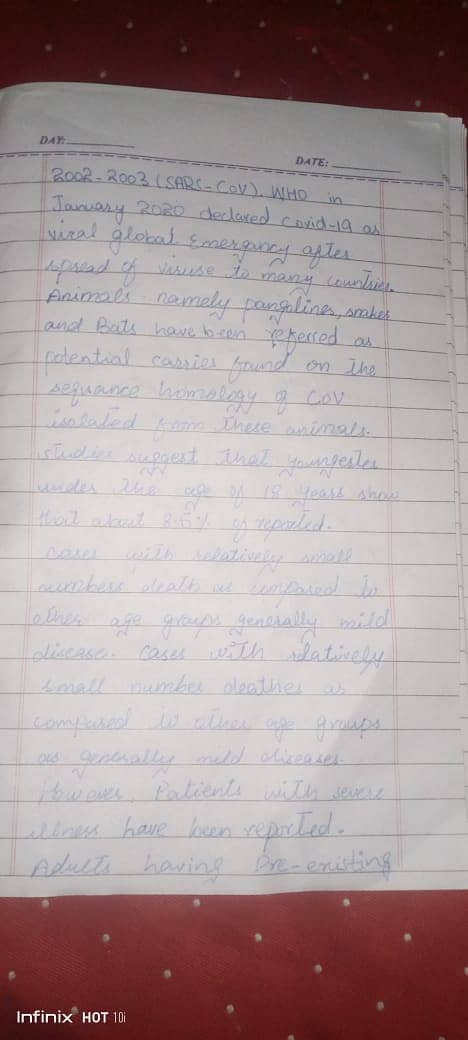 DAY:
DATE:
2002-2003 (SARS-CoV). WHO in
January 2020 declared Covid-19 as
viral global Emergancy after
spread of viruse to many countries.
Animals namely pangolines, snakes
and Bats have been referred as
potential carries found on The
sequance homology of CoV
isolated from These animals.
studies suggest That youngester
under The age of 18 years show
that about 8.5% of reported.
cases with relatively small
numbers death as compared to
other age groups generally mild
disease. Cases with relatively
small number deathes as
compared to other age groups
as generally mild diseases.
However, Patients with severe
illness have been reported.
Adults having Pre-existing
Infinix HOT 10i